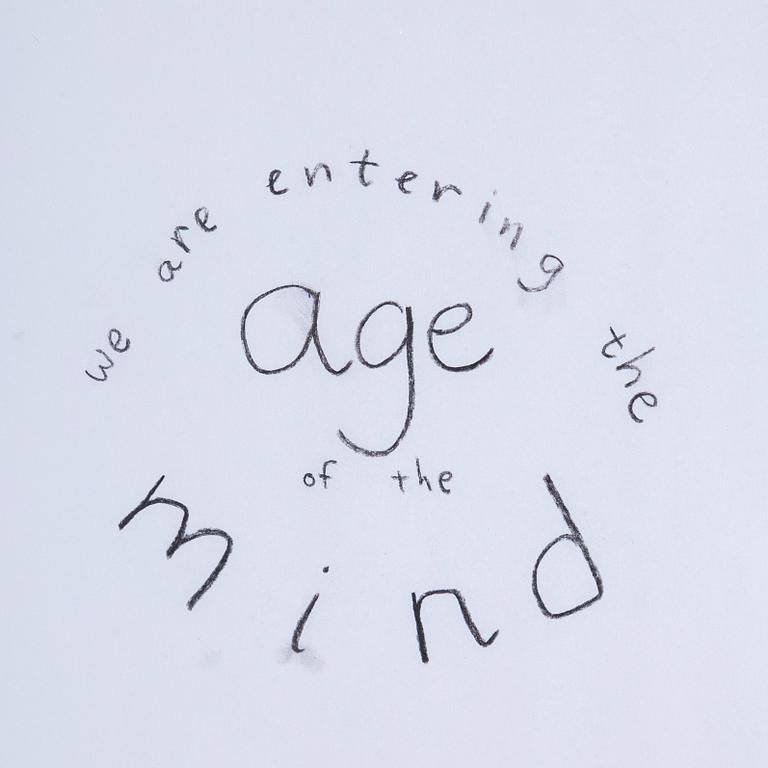 we are entering the
age
of the
mind